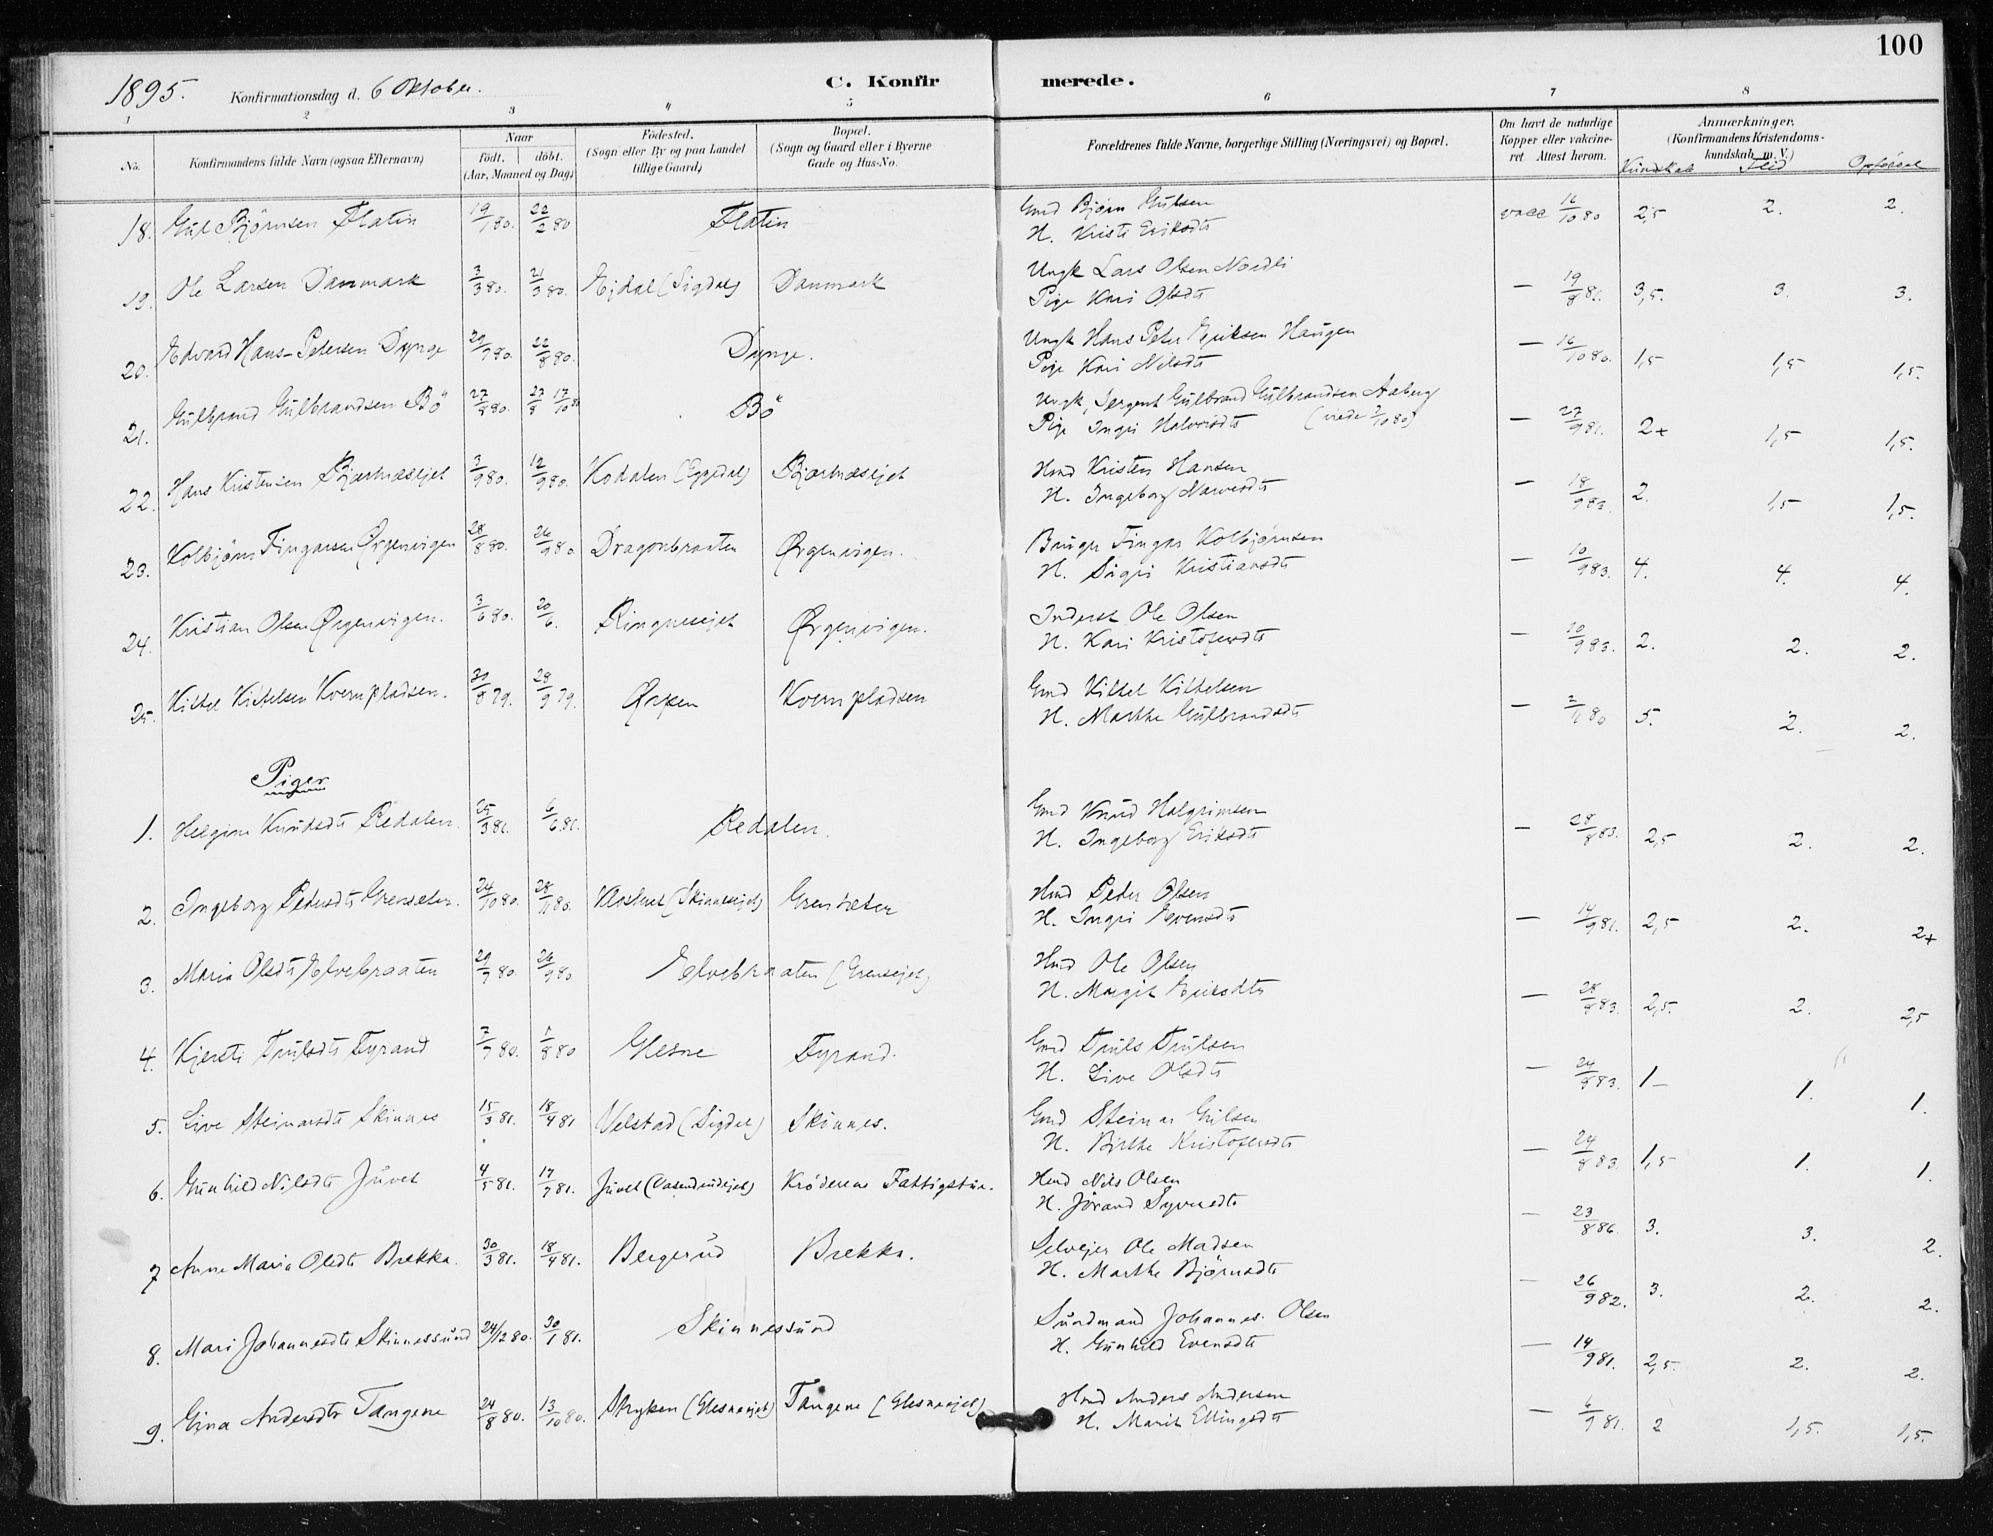 100
1895. Konfirmationsdag d. 6 Oktober. C. Konfirmerede.
1 2 3 4 5 6 7 8
No. Konfirmandens fulde Navn (ogsaa Efternavn) Naar Født. døbt. (Aar, Maaned og Dag) Fødested. (Sogn eller By og paa Landet tillige Gaard) Bopæl. (Sogn og Gaard eller i Byerne Gade og Hus-No. Forældrenes fulde Navne, borgerlige Stilling (Næringsvei) og Bopæl. Om havt de naturlige Kopper eller vakcineret. Attest herom. Anmærkninger. (Konfirmandens Kristendomskundskab m. V.) Kundskab Flid Opførsel
18. Gul Bjørnsen Flatin 19/1 80. 22/2 80 Flatin Gmd Bjørn Gulsen vacc 16/10 80 2,5 2. 2.
H. Kristi Eriksdt
19. Ole Larsen Danmark 3/3 80. 21/3 80. Ejdal (Sigdal) Danmark Ungk Lars Olsen Nordli — 19/8 81. 3,5. 3. 3.
Pige Kari Olsdt
20. Edvard Hans-Petersen Dynge 29/7 80. 22/8 80. Dynge. Ungk Hans Peter Eriksen Haugen — 16/10 80. 1,5 1,5 1,5.
Pige Kari Nilsdt
21. Gulbrand Gulbrandsen Bö 27/8 80. 27/8 17/10 80 Bö Ungk, Sergent Gulbrand Gulbrandsen Aaberg — 27/9 81. 2+ 1,5 1,5.
Pige Ingri Halvorsdt
22. Hans Kristensen Bjertnæsejet 3/9 80. 12/9 80. Kodalen (Eggedal) Bjertnæsejet Hmd Kristen Hansen — 18/9 83. 2. 1,5 1,5.
H. Ingeborg Narvesdt
23. Kolbjörn Fingarsen Ørgenvigen 28/8 80. 26/9 80 Dragonbraaten Ørgenvigen. Bruger Fingar Kolbjørnsen — 10/9 83. 4. 4. 4.
H. Sigri Kristiansdt
24. Kristian Olsen Ørgenvigen. 3/6 80. 20/6. Ringnesejet Ørgenvigen. Inderst Ole Olsen — 10/9 83. 2. 2. 2.
H. Kari Kristofersdt
25. Kittel Kittelsen Kvernpladsen. 31/8 79. 28/9 79. Ørpen Kvernpladsen Gmd Kittel Kittelsen — 2/11 80 5. 2. 2.
H. Marthe Gulbrandsdt
Piger
1. Helgine Knudsdt Redalen. 25/3 81. 6/6 81. Redalen. Gmd Knud Halgrimsen — 28/8 83. 2,5 2. 2.
H. Ingeborg Eriksdt
2. Ingeborg Pedersdt Grensæter. 24/10 80. 28/11 80. (Skinnesejet) Grensæter Hmd Peder Olsen — 14/9 81. 2,5 2. 2+
H. Ingri Evensdt
3. Maria Olsdt Elvebraaten 29/7 80. 26/9 80 Elvebraaten (Grensejet) Hmd Ole Olsen — 28/8 83. 2,5. 2. 2,5
H. Margit Eriksdt
4. Kjersti Trulsdt Fyrand 7/7 80. 1/8 80 Glesne Fyrand. Gmd Truls Trulsen — 24/8 83. 1— 1. 1.
H. Live Olsdt
5. Live Steinarsdt Skinnes 15/3 81. 18/4 81 Velstad (Sigdal) Skinnes. Gmd Steinar Gulsen — 24/8 83. 1,5 1. 1.
H. Birthe Kristofersdt
6. Gunhild Nilsdt Juvet 4/5 81. 17/7 81. Juvet Krödrens Fattigstue. Hmd Nils Olsen — 23/8 86. 3. 3. 2.
H. Jörand Syversdt
7 Anne Maria Olsdt Brekka. 30/3 81. 18/4 81. Bergerud Brekka. Selvejer Ole Madsen — 26/9 82. 3. 2. 2.
H. Marthe Bjørnsdt
8. Mari Johannesdt Skinnessund 24/12 80. 30/1 81. Skinnessund Sundmand Johannes Olsen — 14/9 81. 2,5. 2. 2.
H. Gunhild Evensdt
9. Gina Andersdt Tangene 24/8 80. 13/10 80. Stryken (Glesneejet) Tangene (Glesneejet) Hmd Anders Andersen — 6/9 81. 2 1,5. 1,5.
H. Marit Ellingsdt